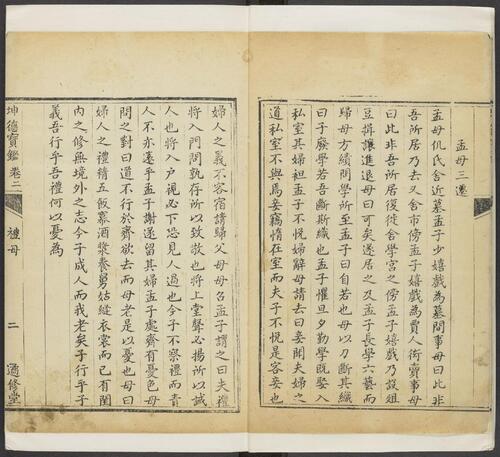 孟母三遷
孟母仉氏舍近墓孟子少嬉戲為墓間事母曰此非
吾所居乃去又舍市傍孟子嬉戲為賈人衒賣事母
曰此非吾所居復徙舍學宮之傍孟子嬉戲乃設俎
豆揖讓進退母曰可矣遂居之及孟子長學六藝而
歸母方績問學所至孟子曰自若也母以刀斷其織
曰子廢學若吾斷斯織也孟子懼旦夕勤學既娶入
私室其婦袒孟子不悅婦辭母請去曰妾聞夫婦之
道私室不與焉妾竊惰在室而夫子不悅是客妾也
婦人之義不客宿請歸父母母召孟子謂之曰夫禮
將入門問孰存所以致敬也將上堂聲必揚所以誡
人也將入戶視必下恐見人過也今子不察禮而責
人不亦遠乎孟子謝遂留其婦孟子處齊有憂色母
問之對曰道不行於齊欲去而母老是以憂也母曰
婦人之禮精五飯冪酒漿養舅姑縫衣裳而已有閨
內之修無境外之志今子成人而我老矣子行乎子
義吾行乎吾禮何以憂為
坤德寶鑑 卷二 母 二 適修堂